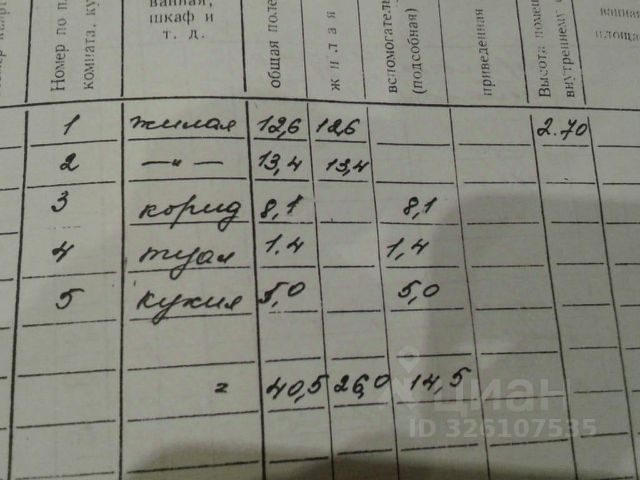 Номер по п
комната, ку
ванная,
шкаф и
т. д.
общая поле
жилая
вспомогатель
(подсобная)
приведенная
Высота помещ
внутреннему
ванная
площа
1 жилая 12,6 12,6 2.70
2 —"— 13,4 13,4
3 корид 8,1 8,1
4 туал 1.4 1,4
5 кухня 5,0 5,0
= 40,5 26,0 14,5
циан
ID 326107535